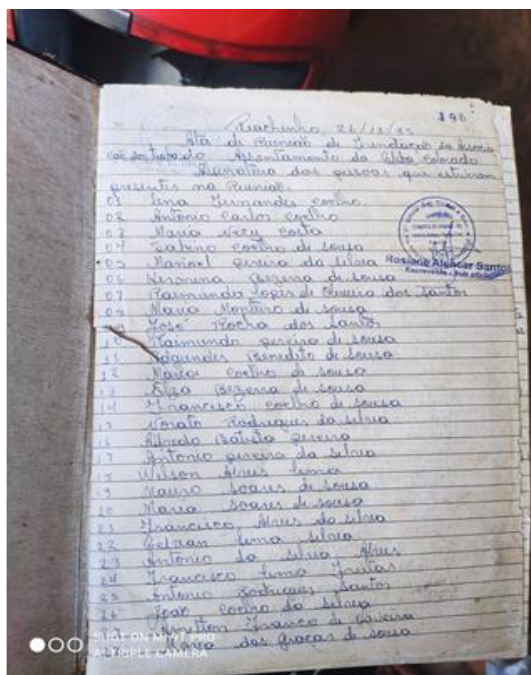 198
Riachinho, 21/11/95
Ata de Reunião de Fundação da Associa
do Assentamento
Assinatura das pessoas que estiveram
presentis na Reunião.
01 Fernandes coelho
02 Antonio Carlos coelho
03 Maria Nery Costa
04 Sabino coelho de sousa
05 Manoel pereira da silva
06 Bezerra de sousa
07 Raimundo Lopes de Oliveira dos Santos
08 Maria Monteiro de sousa
José Rocha dos Santos
10 Raimundo pereira de sousa
11 Benedito de sousa
12 Maria coelho de sousa
13 Elza Bezerra de sousa
14 Francisco coelho de sousa
15 Rodrigues da silva
16 Alfredo Batista pereira
17 Antonio pereira da silva
Wilson Alves Lima
19 Mauro soares de sousa
20 Maria soares de sousa
21 Francisco Alves da silva
22 Lima silva
23 Antonio da silva Alves
24 Francisco Lima Freitas
25 Antonio Rodrigues Santos
26 João coelho da silva
Franco de oliveira
Maria das graças de sousa
Rosiane Alencar Santos
SHOT ON MI 9T PRO
AI TRIPLE CAMERA